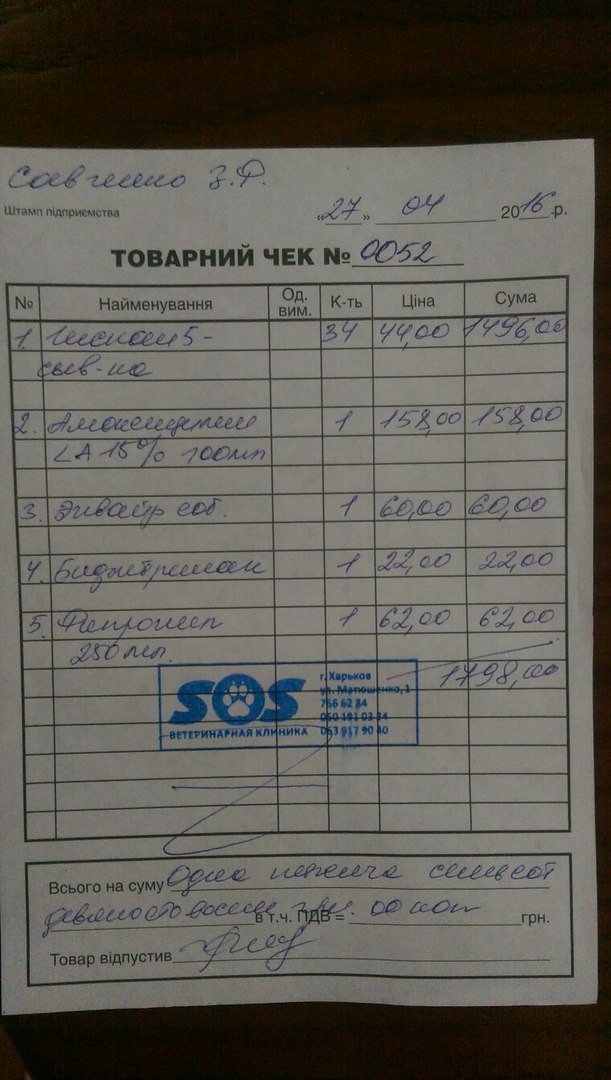 Савченко З.Ф.
Штамп підприємства
"27" 04 2016 р.
ТОВАРНИЙ ЧЕК № 0052
№ Найменування Од. вим. К-ть Ціна Сума
1. 5- 34 44,00 1496,00
сыв-ка
2. 1 158,00 158,00
LA 15% 100мл
3. Эквайр соб. 1 60,00 60,00
4. 1 22,00 22,00
5. 1 62,00 62,00
250мл.
1798,00
SOS
ВЕТЕРИНАРНАЯ КЛИНИКА
г. Харьков
ул. Матюшенко, 1
766 62 84
050 191 03 24
063 917 90 40
Всього на суму Одна тысяча семьсот
девяносто восемь грн. в т.ч. ПДВ = 00 коп грн.
Товар відпустив